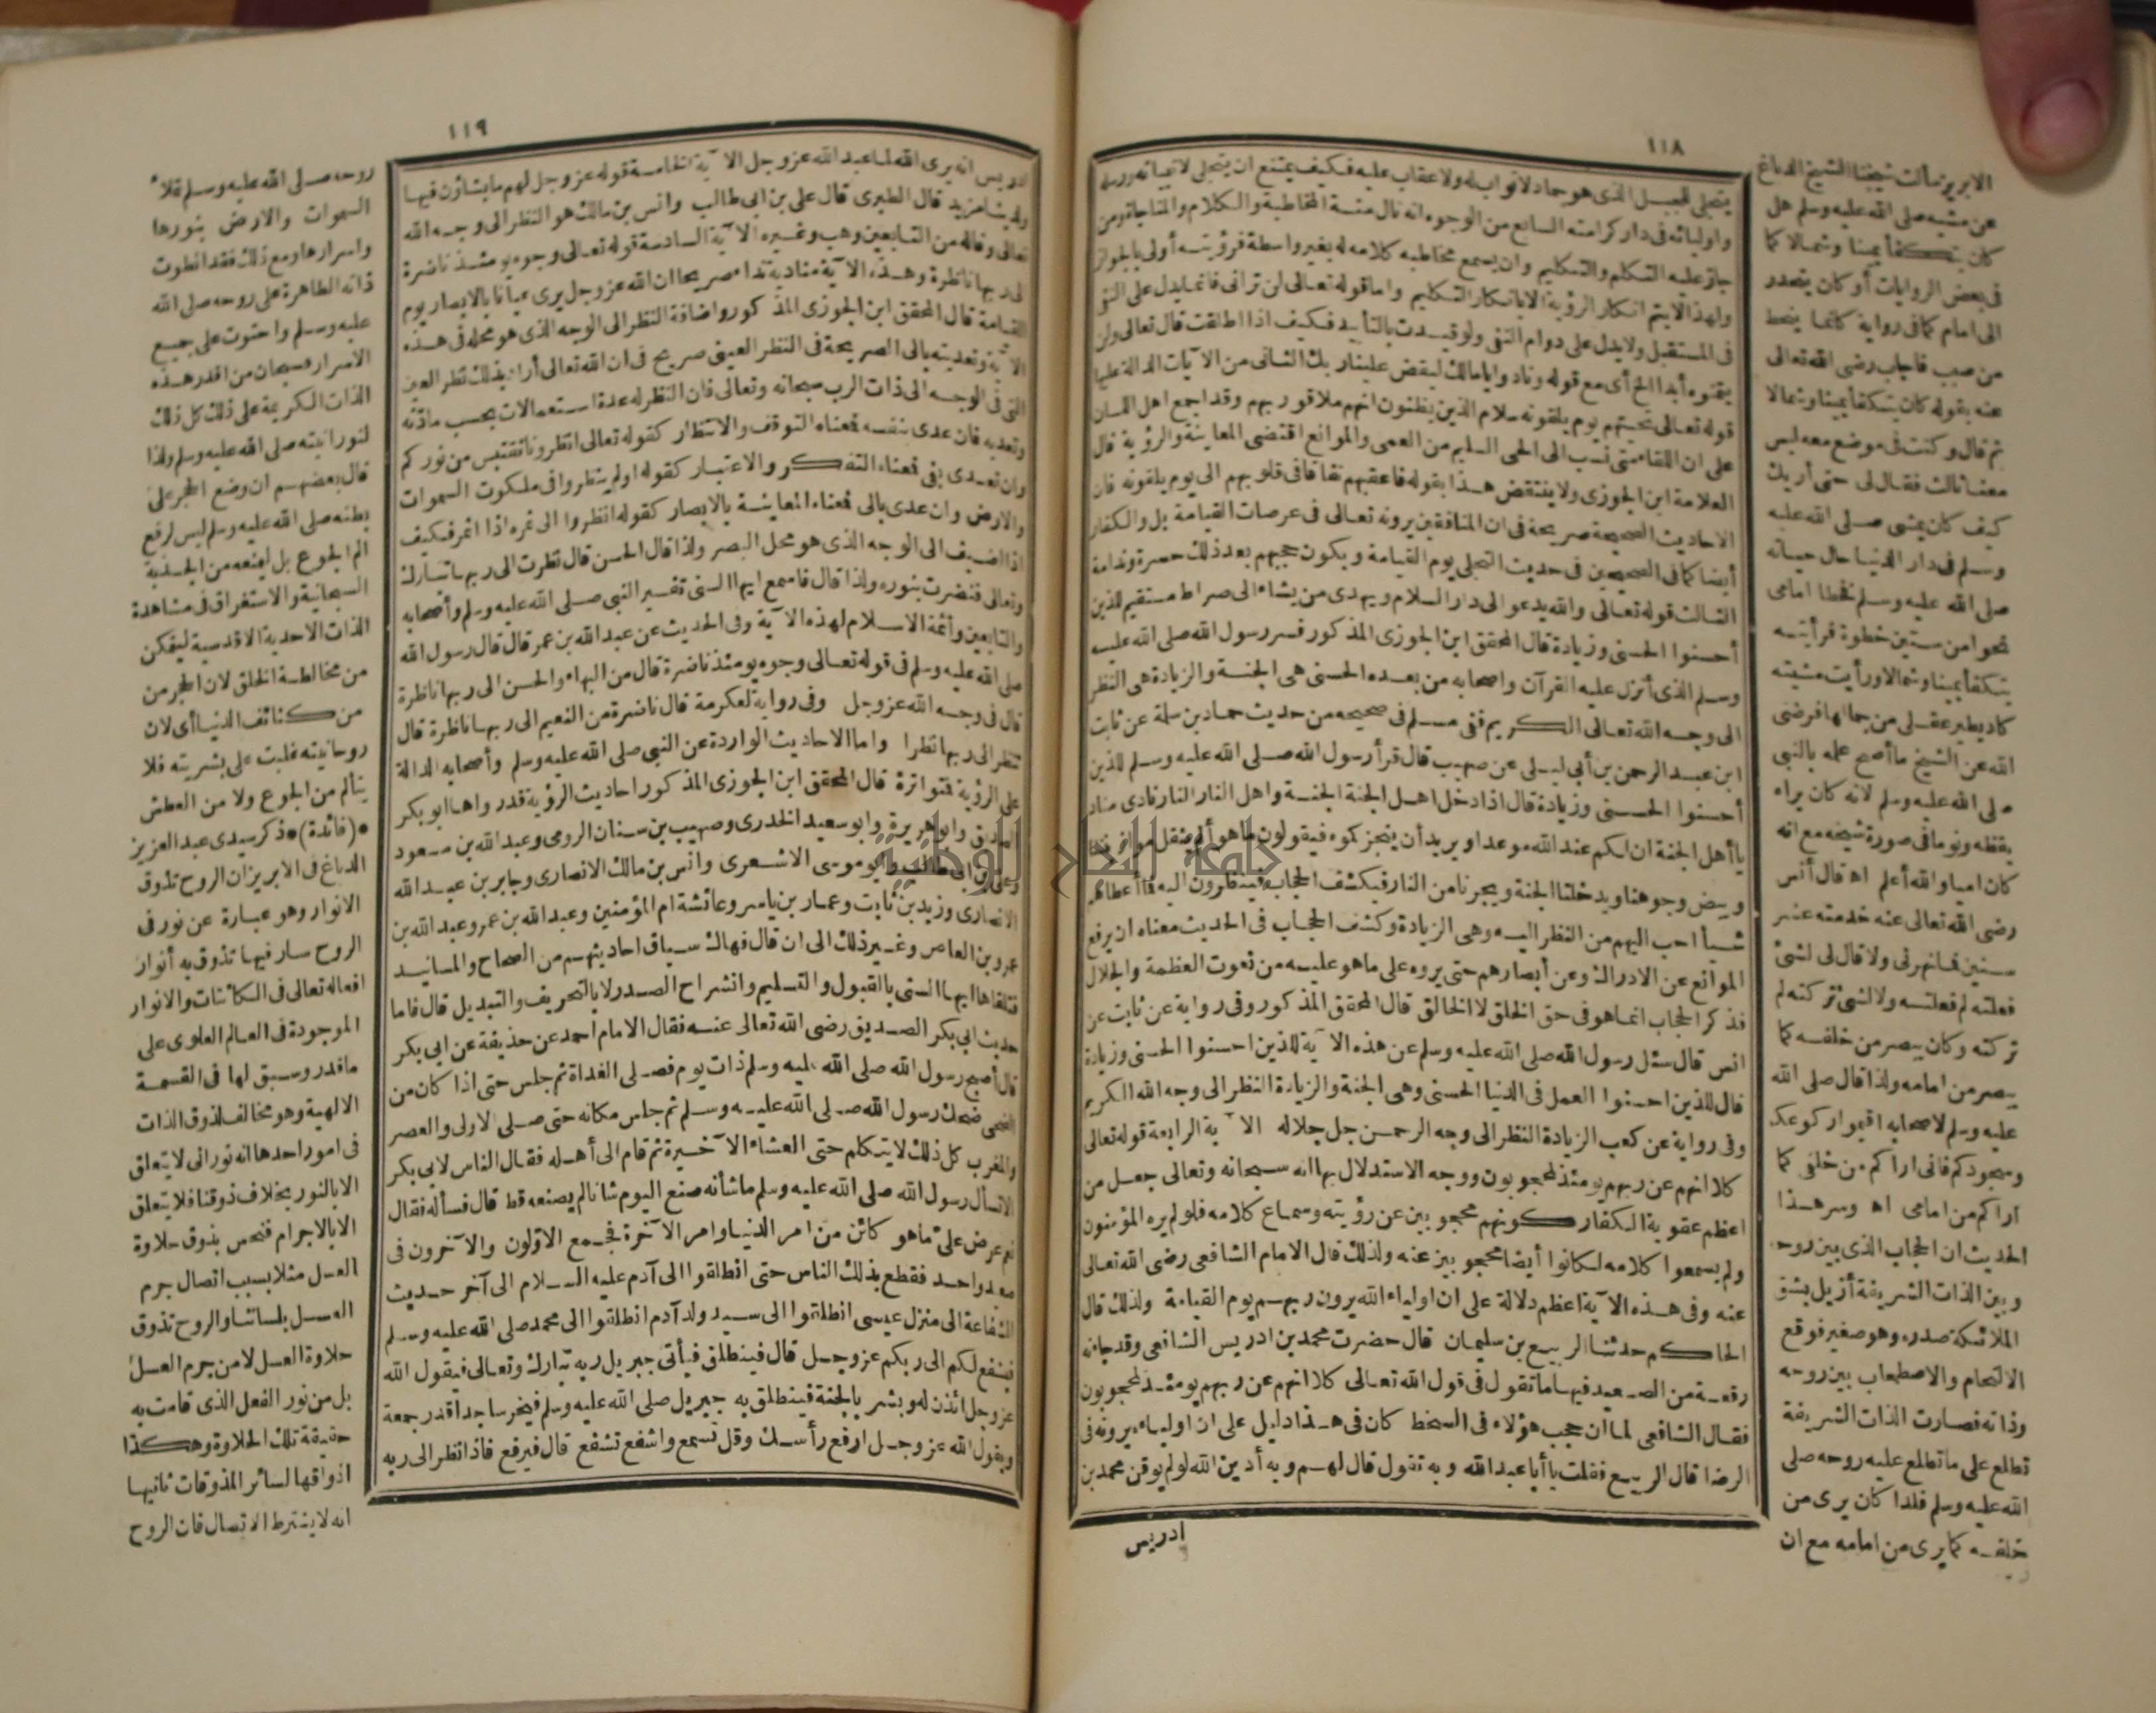 ١١٨
يتجلى للجبل الذى هو جماد لا ثواب له ولا عقاب عليه فكيف يمتنع ان يتجلى لانبيائه ورسله
واوليائه فى دار كرامته السابع من الوجوه انه نال منسة المخاطبة والكلام والمناجاة ومن
جاز عليه التكلم والتكليم وان يسمع مخاطبه كلامه له بغير واسطة فرؤيته أولى بالجواز
ولهذا لايتم انكار الرؤية الا بانكار التكليم واما قوله تعالى لن ترانى فانما يدل على النفى
فى المستقبل ولا يدل على دوام النفى ولو قيدت بالتأبيد فكيف اذا اطلقت قال تعالى ولن
يتمنوه أبدا الخ أى مع قوله ونادوا يا مالك ليقض علينا ربك الثانى من الآيات الدالة عليها
قوله تعالى تحيتهم يوم يلقونه سلام الذين يظنون انهم ملاقوربهم وقد اجمع اهل اللسان
على ان اللقاء متى نسب الى الحى السليم من العمى والموانع اقتضى المعاينة والرؤية قال
العلامة ابن الجوزى ولا ينتقض هذا بقوله فاعقبهم نفاقا فى قلوبهم الى يوم يلقونه فان
الاحاديث الصحيحة صريحة فى ان المنافقين يرونه تعالى فى عرصات القيامة بل والكفار
أيضا كما فى الصحيحين فى حديث التجلى يوم القيامة ويكون حجبهم بعد ذلك حسرة وندامة
الثالث قوله تعالى والله يدعو الى دار السلام ويهدى من يشاء الى صراط مستقيم للذين
أحسنوا الحسنى وزيادة قال المحقق ابن الجوزى المذكور فسر رسول الله صلى الله عليه
وسلم الذى أنزل عليه القرآن واصحابه من بعده الحسنى هى الجنة والزيادة هى النظر
الى وجه الله تعالى الكريم ففى مسلم فى صحيحه من حديث حماد بن سلمة عن ثابت
ابن عبد الرحمن بن أبى ليلى عن صهيب قال قرأ رسول الله صلى الله عليه وسلم للذين
أحسنوا الحسنى وزيادة قال اذا دخل اهل الجنة الجنة واهل النار النار نادى مناد
يا أهل الجنة ان لكم عند الله موعدا ويريد أن ينجزكموه فيقولون ما هو ألم يثقل موازيننا
ويبيض وجوهنا ويدخلنا الجنة ويجرنا من النار فيكشف الحجاب فينظرون اليه فما أعطاهم
شيأ احب اليهم من النظر اليه وهى الزيادة وكشف الحجاب فى الحديث معناه ان يرفع
الموانع عن الادراك وعن أبصارهم حتى يروه على ما هو عليه من نعوت العظمة والجلال
فذكر الحجاب انما هو فى حق الخلق لا الخالق قال المحقق المذكور وفى رواية عن ثابت عن
انس قال سئل رسول الله صلى الله عليه وسلم عن هذه الآية للذين احسنوا الحسنى وزيادة
قال للذين احسنوا العمل فى الدنيا الحسنى وهى الجنة والزيادة النظر الى وجه الله الكريم
وفى رواية عن كعب الزيادة النظر الى وجه الرحمن جل جلاله الآية الرابعة قوله تعالى
كلا انهم عن ربهم يومئذ لمحجوبون ووجه الاستدلال بها انه سبحانه وتعالى جعل من
اعظم عقوبة الكفار كونهم محجوبين عن رؤيته وسماع كلامه فلو لم يره المؤمنون
ولم يسمعوا كلامه لكانوا أيضا محجوبين عنه ولذلك قال الامام الشافعى رضى الله تعالى
عنه وفى هذه الآية اعظم دلالة على ان اولياء الله يرون ربهم يوم القيامة ولذلك قال
الحاكم حدثنا الربيع بن سليمان قال حضرت محمد بن ادريس الشافعى وقد جاءته
رقعة من الصعيد فيها ما تقول فى قول الله تعالى كلا انهم عن ربهم يومئذ لمحجوبون
فقال الشافعى لما أن حجب هؤلاء فى السخط كان فى هذا دليل على ان اولياءه يرونه فى
الرضا قال الربيع فقلت يا أبا عبد الله وبه تقول قال لهم وبه أدين الله لو لم يوقن محمد بن
ادريس
الابريز سألت شيخنا الشيخ الدباغ
عن مشيه صلى الله عليه وسلم هل
كان يتكفأ يمينا وشمالا كما
فى بعض الروايات أو كان ينحدر
الى امام كما فى رواية كانما ينحط
من صبب فاجاب رضى الله تعالى
عنه بقوله كان يتكفأ يمينا وشمالا
ثم قال وكنت فى موضع معه ليس
معنا ثالث فقال لى حتى أريك
كيف كان يمشى صلى الله عليه
وسلم فى دار الدنيا حال حياته
صلى الله عليه وسلم فخطا امامى
نحوا من ستين خطوة فرأيته
يتكفأ يمينا وشمالا ورأيت مشيته
كاد يطير عقلى من جمالها فرضى
الله عن الشيخ ما أصح علمه بالنبى
صلى الله عليه وسلم لانه كان يراه
يقظة ونوما فى صورة شيخه مع انه
كان اميا والله أعلم اه قال أنس
رضى الله تعالى عنه خدمته عشر
سنين فما نهرنى ولا قال لى لشئ
فعلته لم فعلته ولا لشئ تركته لم
تركته وكان يبصر من خلفه كما
يبصر من امامه ولذا قال صلى الله
عليه وسلم لاصحابه اقيموا ركوعكم
وسجودكم فانى اراكم من خلفى كما
اراكم من امامى اه وسر هذا
الحديث ان الحجاب الذى بين روحه
وبين الذات الشريفة أزيل بشق
الملائكة صدره وهو صغير فوقع
الالتحام والاصطحاب بين روحه
وذاته فصارت الذات الشريفة
تطلع على ما تطلع عليه روحه صلى
الله عليه وسلم فلذا كان يرى من
خلفه كما يرى من امامه مع ان
١١٩
ادريس انه يرى الله لما عبد الله عز وجل الآية الخامسة قوله عز وجل لهم ما يشاؤن فيها
ولدينا مزيد قال الطبرى قال على بن ابى طالب وانس بن مالك هو النظر الى وجه الله
تعالى وقاله من التابعين وهب وغيره الآية السادسة قوله تعالى وجوه يومئذ ناضرة
الى ربها ناظرة وهذه الآية منادية نداء صريحا ان الله عز وجل يرى عيانا بالابصار يوم
القيامة قال المحقق ابن الجوزى المذكور واضافة النظر الى الوجه الذى هو محله فى هذه
الآية وتعديته بالى الصريحة فى النظر العينى صريح فى ان الله تعالى أراد بذلك نظر العين
التى فى الوجه الى ذات الرب سبحانه وتعالى فان النظر له عدة استعمالات بحسب مادته
وتعديه فان عدى بنفسه فمعناه التوقف والانتظار كقوله تعالى انظرونا نقتبس من نوركم
وان تعدى بفى فمعناه التفكر والاعتبار كقوله اولم ينظروا فى ملكوت السموات
والارض وان عدى بالى فمعناه المعاينة بالابصار كقوله انظروا الى ثمره اذا اثمر فكيف
اذا اضيف الى الوجه الذى هو محل البصر ولذا قال الحسن قال نظرت الى ربها تبارك
وتعالى فنضرت بنوره ولذا قال فاسمع ايها السنى تفسير النبى صلى الله عليه وسلم وأصحابه
والتابعين وأئمة الاسلام لهذه الآية وفى الحديث عن عبد الله بن عمر قال قال رسول الله
صلى الله عليه وسلم فى قوله تعالى وجوه يومئذ ناضرة قال من البهاء والحسن الى ربها ناظرة
قال فى وجه الله عز وجل وفى رواية لعكرمة قال ناضرة من النعيم الى ربها ناظرة قال
تنظر الى ربها نظرا واما الاحاديث الواردة عن النبى صلى الله عليه وسلم وأصحابه الدالة
على الرؤية فمتواترة قال المحقق ابن الجوزى المذكور احاديث الرؤية قد رواها ابو بكر
الصديق وابو هريرة وابو سعيد الخدرى وصهيب بن سنان الرومى وعبد الله بن مسعود
وعلى بن ابى طالب وابو موسى الاشعرى وانس بن مالك الانصارى وجابر بن عبد الله
الانصارى وزيد بن ثابت وعمار بن ياسر وعائشة ام المؤمنين وعبد الله بن عمر وعبد الله بن
عمرو بن العاص وغير ذلك الى ان قال فهاك سياق احاديثهم من الصحاح والمسانيد
فتلقاها ايها السنى بالقبول والتسليم وانشراح الصدر لا بالتحريف والتبديل قال فاما
حديث ابى بكر الصديق رضى الله تعالى عنه فقال الامام احمد عن حذيفة عن ابى بكر
قال أصبح رسول الله صلى الله عليه وسلم ذات يوم فصلى الغداة ثم جلس حتى اذا كان من
الضحى ضحك رسول الله صلى الله عليه وسلم ثم جلس مكانه حتى صلى الاولى والعصر
والمغرب كل ذلك لا يتكلم حتى العشاء الآخيرة ثم قام الى أهله فقال الناس لابى بكر
الا نسأل رسول الله صلى الله عليه وسلم ما شأنه صنع اليوم شأنا لم يصنعه قط قال فسأله فقال
نعم عرض على ما هو كائن من امر الدنيا وامر الآخرة فجمع الاولون والآخرون فى
صعيد واحد فقطع بذلك الناس حتى انطلقوا الى آدم عليه السلام الى آخر حديث
الشفاعة الى منزل عيسى انطلقوا الى سيد ولد آدم انطلقوا الى محمد صلى الله عليه وسلم
فيشفع لكم الى ربكم عز وجل قال فينطلق فيأتى جبريل ربه تبارك وتعالى فيقول الله
عز وجل ائذن له وبشره بالجنة فينطلق به جبريل صلى الله عليه وسلم فيخر ساجدا قدر جمعة
ويقول الله عز وجل ارفع رأسك وقل تسمع واشفع تشفع قال فيرفع فاذا نظر الى ربه
روحه صلى الله عليه وسلم تملأ
السموات والارض بنورها
واسرارها ومع ذلك فقد انطوت
ذاته الطاهرة على روحه صلى الله
عليه وسلم واحتوت على جميع
الاسرار فسبحان من اقدر هذه
الذات الكريمة على ذلك كل ذلك
لنورانيته صلى الله عليه وسلم ولذا
قال بعضهم ان وضع الحجر على
بطنه صلى الله عليه وسلم ليس لرفع
الم الجوع بل ليمنعه من الجذبة
السبحانية والاستغراق فى مشاهدة
الذات الاحدية الاقدسية ليتمكن
من مخالطة الخلق لان الحجر من
من كثائف الدنيا أى لان
روحانيته غلبت على بشريته فلا
يتألم من الجوع ولا من العطش
*(فائدة)* ذكر سيدى عبد العزيز
الدباغ فى الابريز ان الروح تذوق
الانوار وهو عبارة عن نور فى
الروح سار فيها تذوق به أنوار
افعاله تعالى فى الكائنات والانوار
الموجودة فى العالم العلوى على
ما قدر وسبق لها فى القسمة
الالهية وهو مخالف لذوق الذات
فى امور احدها انه نورانى لا يتعلق
الا بالنور بخلاف ذوقنا فلا يتعلق
الا بالاجرام فنحس بذوق حلاوة
العسل مثلا بسبب اتصال جرم
العسل بلساننا والروح تذوق
حلاوة العسل لا من جرم العسل
بل من نور الفعل الذى قامت به
حقيقة تلك الحلاوة وهكذا
اذواقها لسائر المذوقات ثانيها
انه لا يشترط الاتصال فان الروح
جامعة النجاح الوطنية